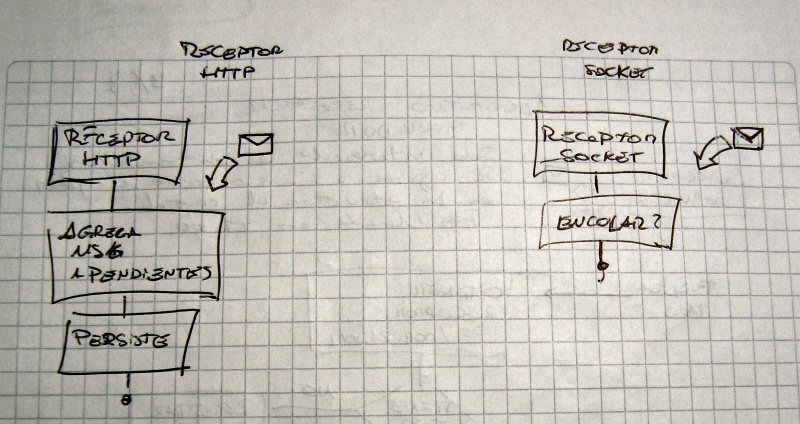 RECEPTOR
HTTP
RECEPTOR
HTTP
AGREGA
MSG
A PENDIENTES
PERSISTE
RECEPTOR
SOCKET
RECEPTOR
SOCKET
ENCOLAR?